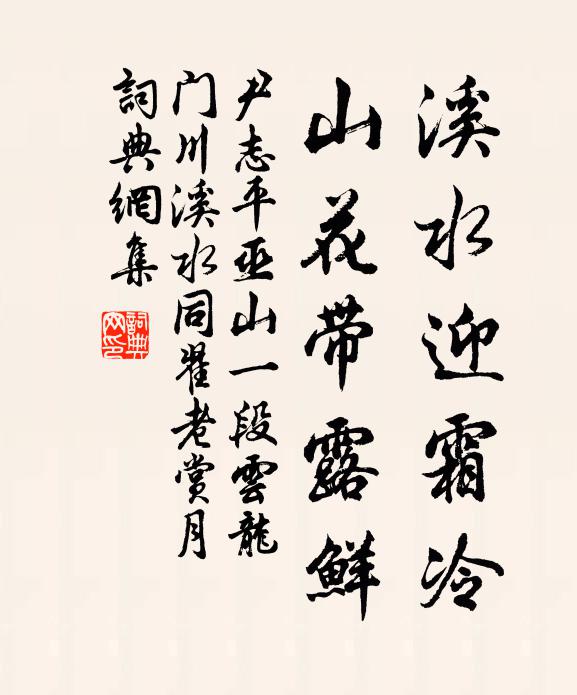 溪水迎霜冷
山花带露鲜
尹志平巫山一段雲龍
门川溪水同瞿老赏月
詞典網集
詞典网印